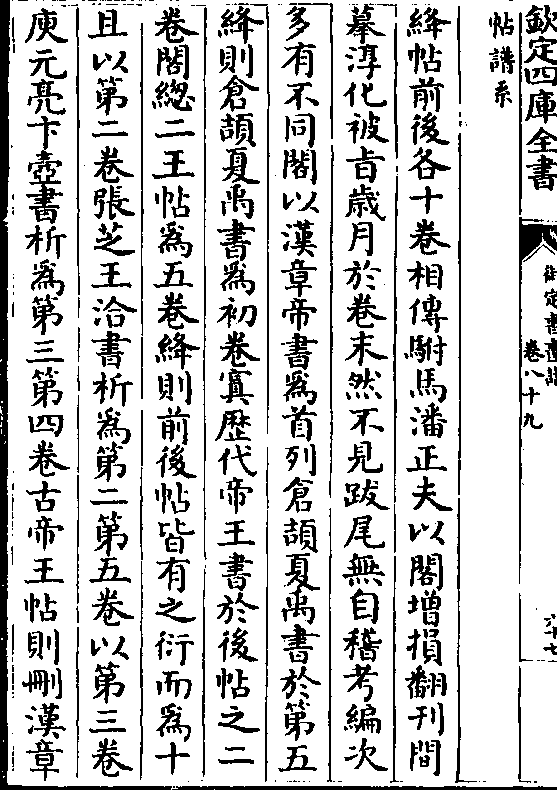 欽定四庫全書
御定書畫譜
卷八十九
六十七
帖譜系
絳帖前後各十卷相傳駙馬潘正夫以閣增損翻刊間
摹淳化被旨歲月於卷末然不見跋尾無自稽考編次
多有不同閣以漢章帝書為首列倉頡夏禹書於第五
絳則倉頡夏禹書為初卷寘歴代帝王書於後帖之二
卷閣緫二王帖為五卷絳則前後帖皆有之衍而為十
且以第二卷張芝王洽書析為第二第五卷以第三卷
庾元亮卞壼書析為第三第四卷古帝王帖則刪漢章